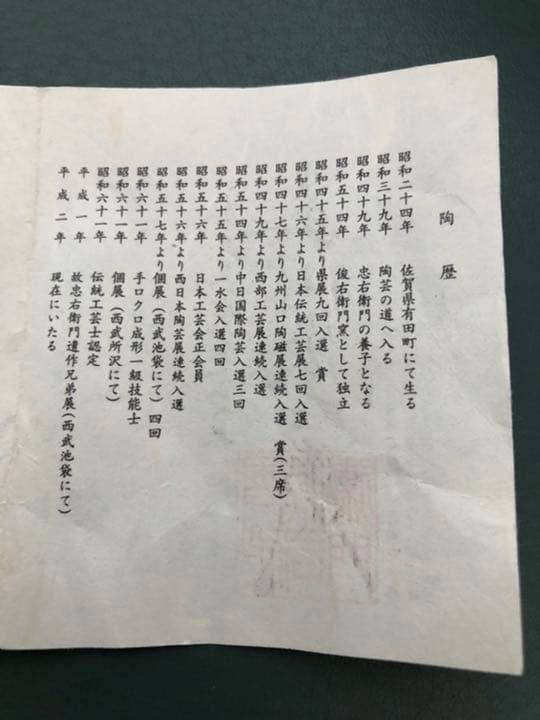 陶歴
昭和二十四年 佐賀県有田町にて生る
昭和三十九年 陶芸の道へ入る
昭和四十九年 忠右衛門の養子となる
昭和五十四年 俊右衛門窯として独立
昭和四十五年より県展九回入選 賞
昭和四十六年より日本伝統工芸展七回入選
昭和四十七年より九州山口陶磁展連続入選 賞(三席)
昭和四十九年より西部工芸展連続入選
昭和五十四年より中日国際陶芸入選三回
昭和五十五年より一水会入選四回
昭和五十六年 日本工芸会正会員
昭和五十六年より西日本陶芸展連続入選
昭和五十七年より個展(西武池袋にて)四回
昭和六十一年 手ロクロ成形一級技能士
昭和六十一年 個展(西武所沢にて)
昭和六十一年 伝統工芸士認定
平成一年 故忠右衛門遺作兄弟展(西武池袋にて)
平成二年 現在にいたる